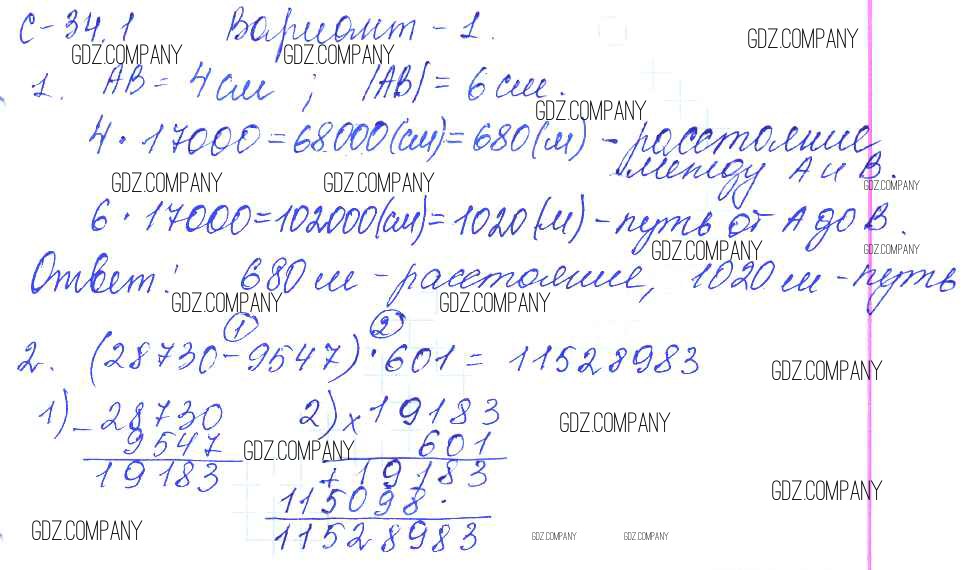 С-34.1 Вариант - 1.
GDZ.COMPANY GDZ.COMPANY GDZ.COMPANY
1. AB = 4 см ; |AB| = 6 см.
GDZ.COMPANY
4 · 17000 = 68000 (см) = 680 (м) - расстояние
между А и В.
GDZ.COMPANY GDZ.COMPANY GDZ.COMPANY
6 · 17000 = 102000 (см) = 1020 (м) - путь от А до В.
GDZ.COMPANY GDZ.COMPANY
Ответ: 680 м - расстояние, 1020 м - путь
GDZ.COMPANY GDZ.COMPANY
1 2
2. (28730 - 9547) · 601 = 11528983
GDZ.COMPANY
1) - 28730 2) x 19183
GDZ.COMPANY
9547 601
GDZ.COMPANY
19183 + 19183
GDZ.COMPANY
115098 ·
11528983
GDZ.COMPANY GDZ.COMPANY GDZ.COMPANY